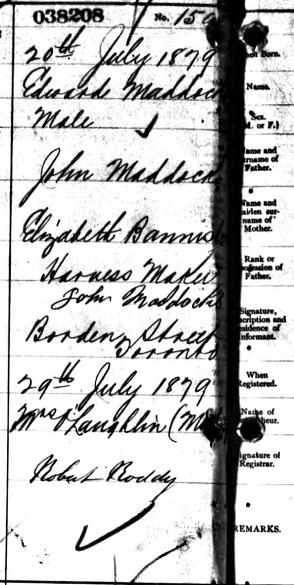 038208 No. 150
20th July 1879
When Born.
Edward Maddock
Name.
Male
Sex.
(M. or F.)
John Maddock
Name and
Surname of
Father.
Elizabeth Bannis
Name and
Maiden sur-
name of
Mother.
Harness Maker
Rank or
Profession of
Father.
John Maddock
Borden Street
Toronto
Signature,
Description and
Residence of
Informant.
29th July 1879
When
Registered.
Mrs O'Laughlin (M
Name of
Accoucheur.
Robert Roddy
Signature of
Registrar.
REMARKS.